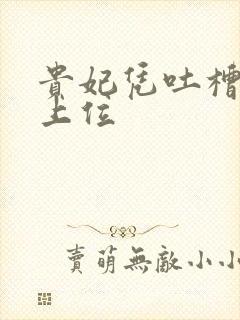 貴妃凭吐槽
上位
賣萌無敵小小